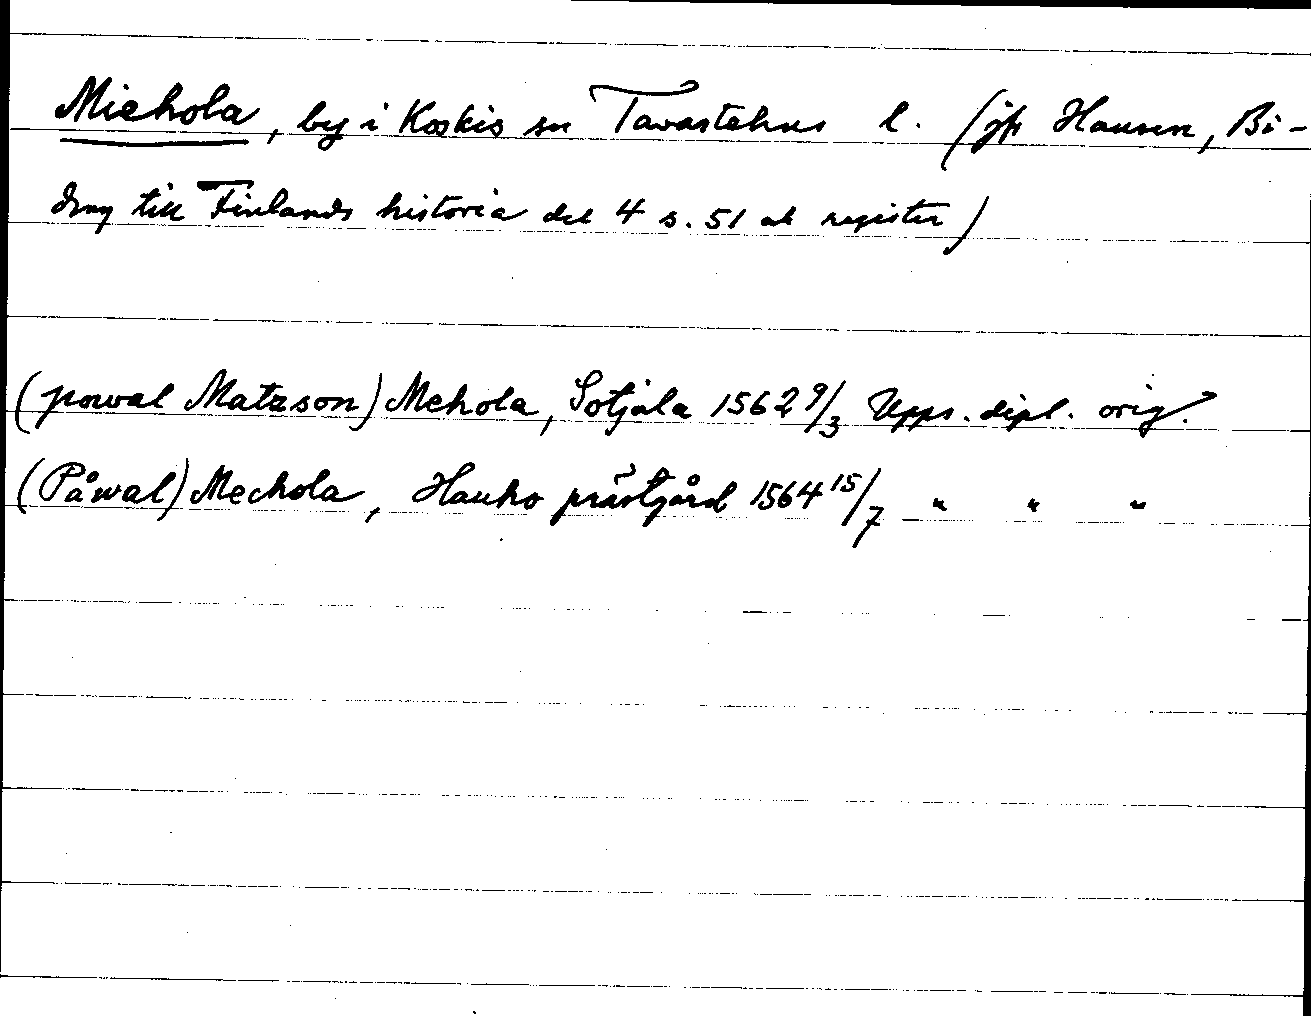 Miehola, by i Koskis sn Tavastehus l. (jfr Hausen, Bi-
drag till Finlands historia del 4 s. 51 ab register)
(powal Matzson) Mehola, Sotjala 1562 9/3 Upps. dipl. orig.
(Påwal) Mechola, Hauho prästgård 1564 15/7 " " "